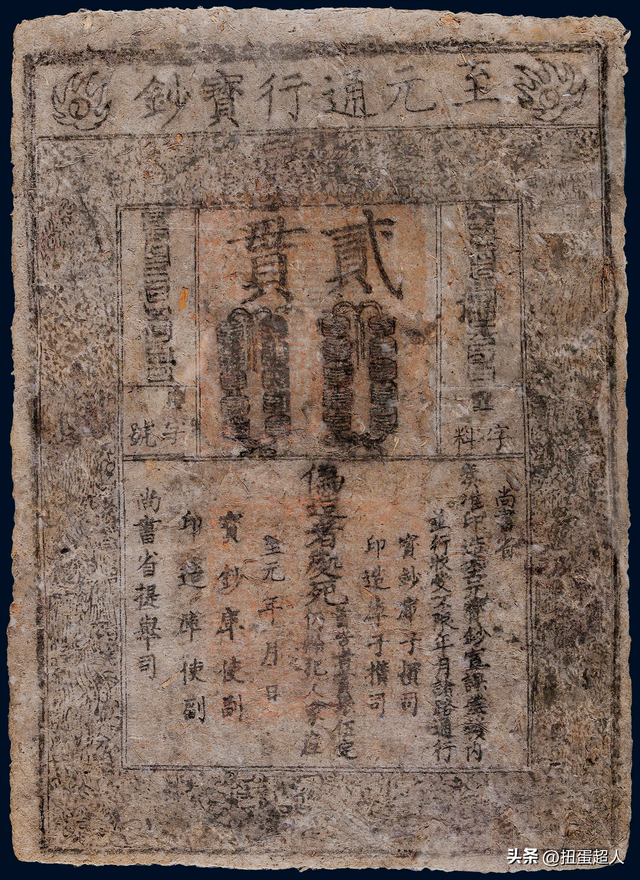 至元通行寶鈔
貳貫
字料
字號
尚書省
奏准印造至元寶鈔宣課差發內
並行收受不限年月諸路通行
寶鈔庫子攢司
印造庫子攢司
偽造者處死
首告者賞銀伍定
仍給犯人家產
至元 年 月 日
寶鈔庫使副
印造庫使副
尚書省提舉司
头条 @扭蛋超人